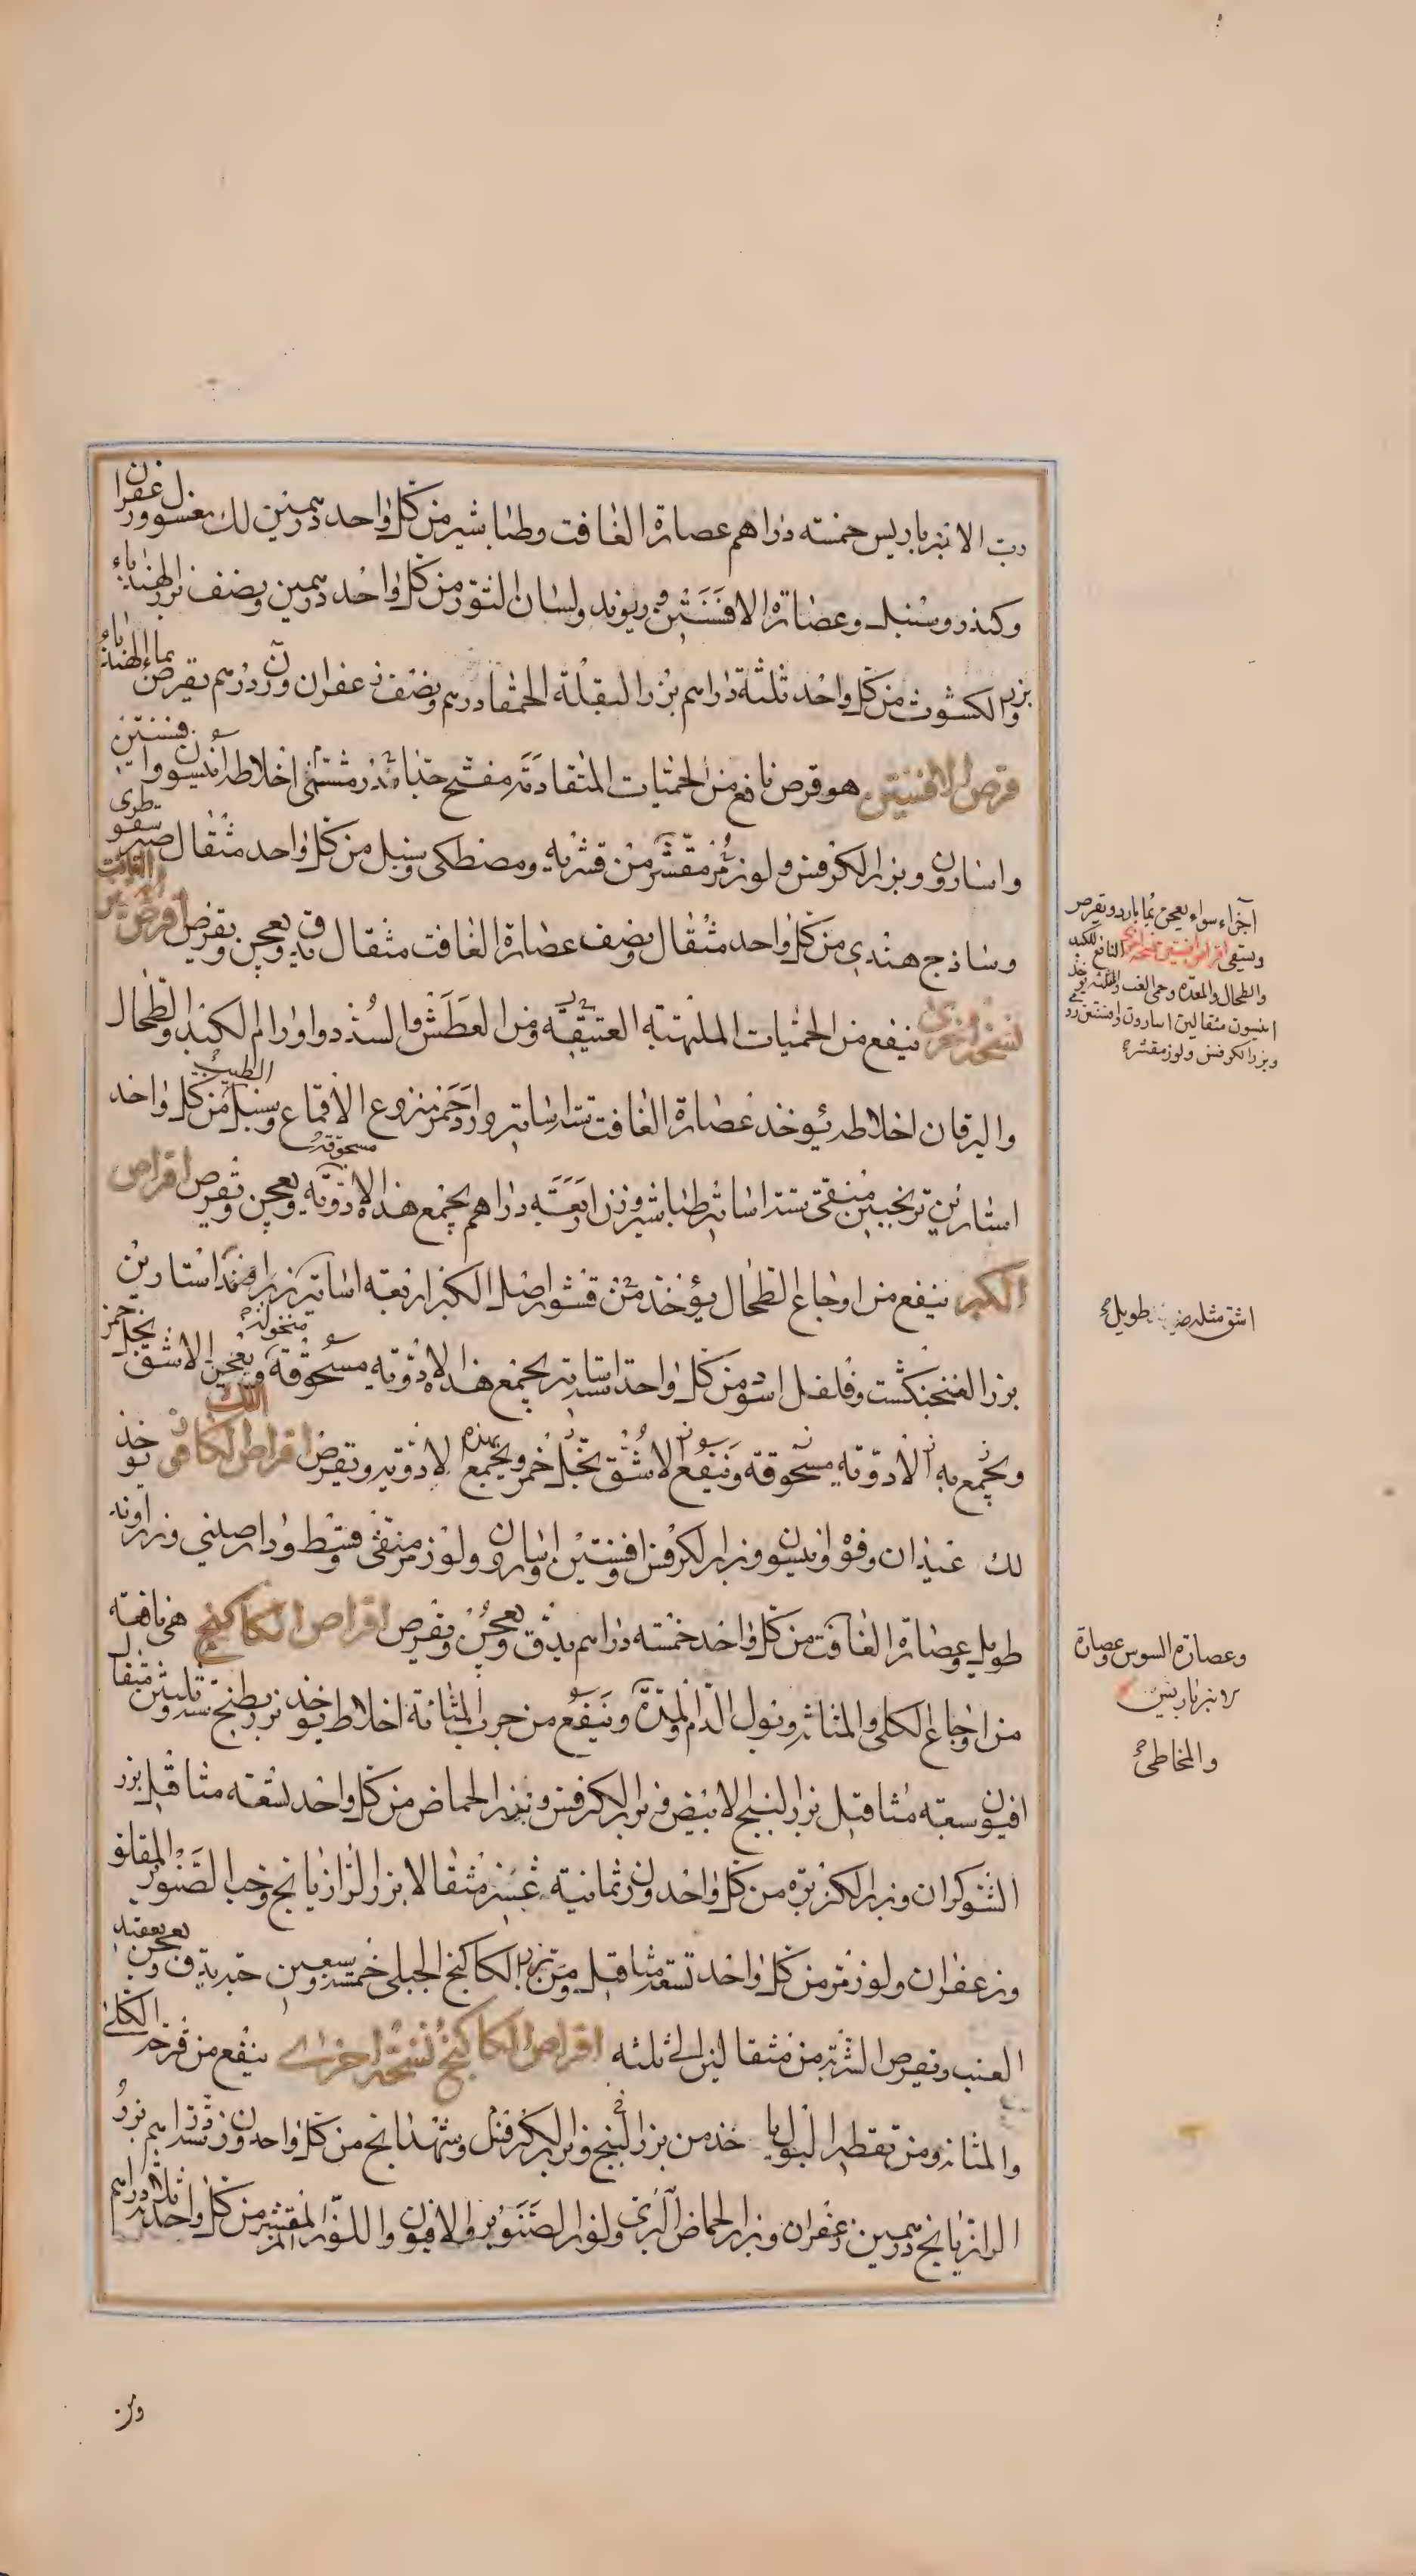 رب الانبرباريس خمسة دراهم عصارة الغافت وطباشير من كل واحد درهمين لك مغسول وزعفران
وكندر وسنبل وعصارة الافسنتين وريوند ولسان الثور من كل واحد درهمين ونصف بزر الهندباء
وبزر الكشوث من كل واحد ثلثة دراهم بزر البقلة الحمقا درهم ونصف زعفران وزن درهم يقرص بماء الهندباء
قرص الافسنتين هو قرص نافع من الحميات المتقادمة مفتح جدا مدر مشتهى اخلاطه انيسون وافسنتين
واسارون وبزر الكرفس ولوز مر مقشر من قشريه ومصطكى وسنبل من كل واحد مثقال صبر سقوطرى
وساذج هندى من كل واحد مثقال ونصف عصارة الغافت مثقال يدق ويعجن ويقرص اقراص الغافت
نسخة اخرى ينفع من الحميات الملتهبة العتيقة ومن العطش والسدد واورام الكبد والطحال
واليرقان اخلاطه يؤخذ عصارة الغافت ستة اساتير ورد احمر منزوع الاقماع وسنبل الطيب من كل واحد
استارين ترنجبين منقى ستة اساتير طباشير وزن اربعة دراهم يجمع هذه الادوية مسحوقة ويعجن وتقرص اقراص
الكبر ينفع من اوجاع الطحال يؤخذ من قشور اصل الكبر اربعة اساتير زراوند استارين
بزر الفنجنكشت وفلفل اسود من كل واحد ستة اساتير يجمع هذه الادوية مسحوقة منخولة ويعجن الاشق بخل خمر
ويجمع به الادوية مسحوقة وينقع الاشق بخل خمر ويجمع بهذه الادوية وتقرص اقراص اللك الكافورى يؤخذ
لك عيدان وفوة وانيسون وبزر الكرفس وافسنتين واسارون ولوز مر منقى وقسط ودارصينى وزراوند
طويل وعصارة الغافت من كل واحد خمسة دراهم يدق ويعجن ويقرص اقراص الكاكنج هى نافعة
من اوجاع الكلى والمثانة وبول الدم والمدة وينفع من جرب المثانة اخلاطه يؤخذ بزر بطيخ ستة وثلثين مثقالا
افيون سبعة مثاقيل بزر البنج الابيض وبزر الكرفس وبزر الحماض من كل واحد تسعة مثاقيل بزر
الشوكران وبزر الكزبرة من كل واحد وزن ثمانية عشر مثقالا بزر الرازيانج وحب الصنوبر المقلو
وزعفران ولوز مر من كل واحد تسعة مثاقيل ومن بزر الكاكنج الجبلى خمسة وسبعين حبة يدق ويعجن بعقيد
العنب ويقرص الشربة من مثقالين الى ثلثة اقراص الكاكنج نسخة اخرى ينفع من قرحة الكلى
والمثانة ومن تقطير البول خذ من بزر البنج وبزر الكرفس وشهدانج من كل واحد وزن ستة دراهم بزر
الرازيانج درهمين زعفران وبزر الحماض البرى ولوز الصنوبر والافيون واللوز المر المقشر من كل واحد ثلثة دراهم
اجزاء سواء يعجن بماء بارد ويقرص
ويسقى اقراص افسنتين نسخة اخرى النافع للكبد
والطحال والمعدة وحمى الغب والمثلثة يؤخذ
انيسون مثقالين اسارون وافسنتين رومى
وبزر الكرفس ولوز مقشر
اشق مثله طويل
وعصارة السوس وعصارة
الانبرباريس
والمخاطى
وبزر